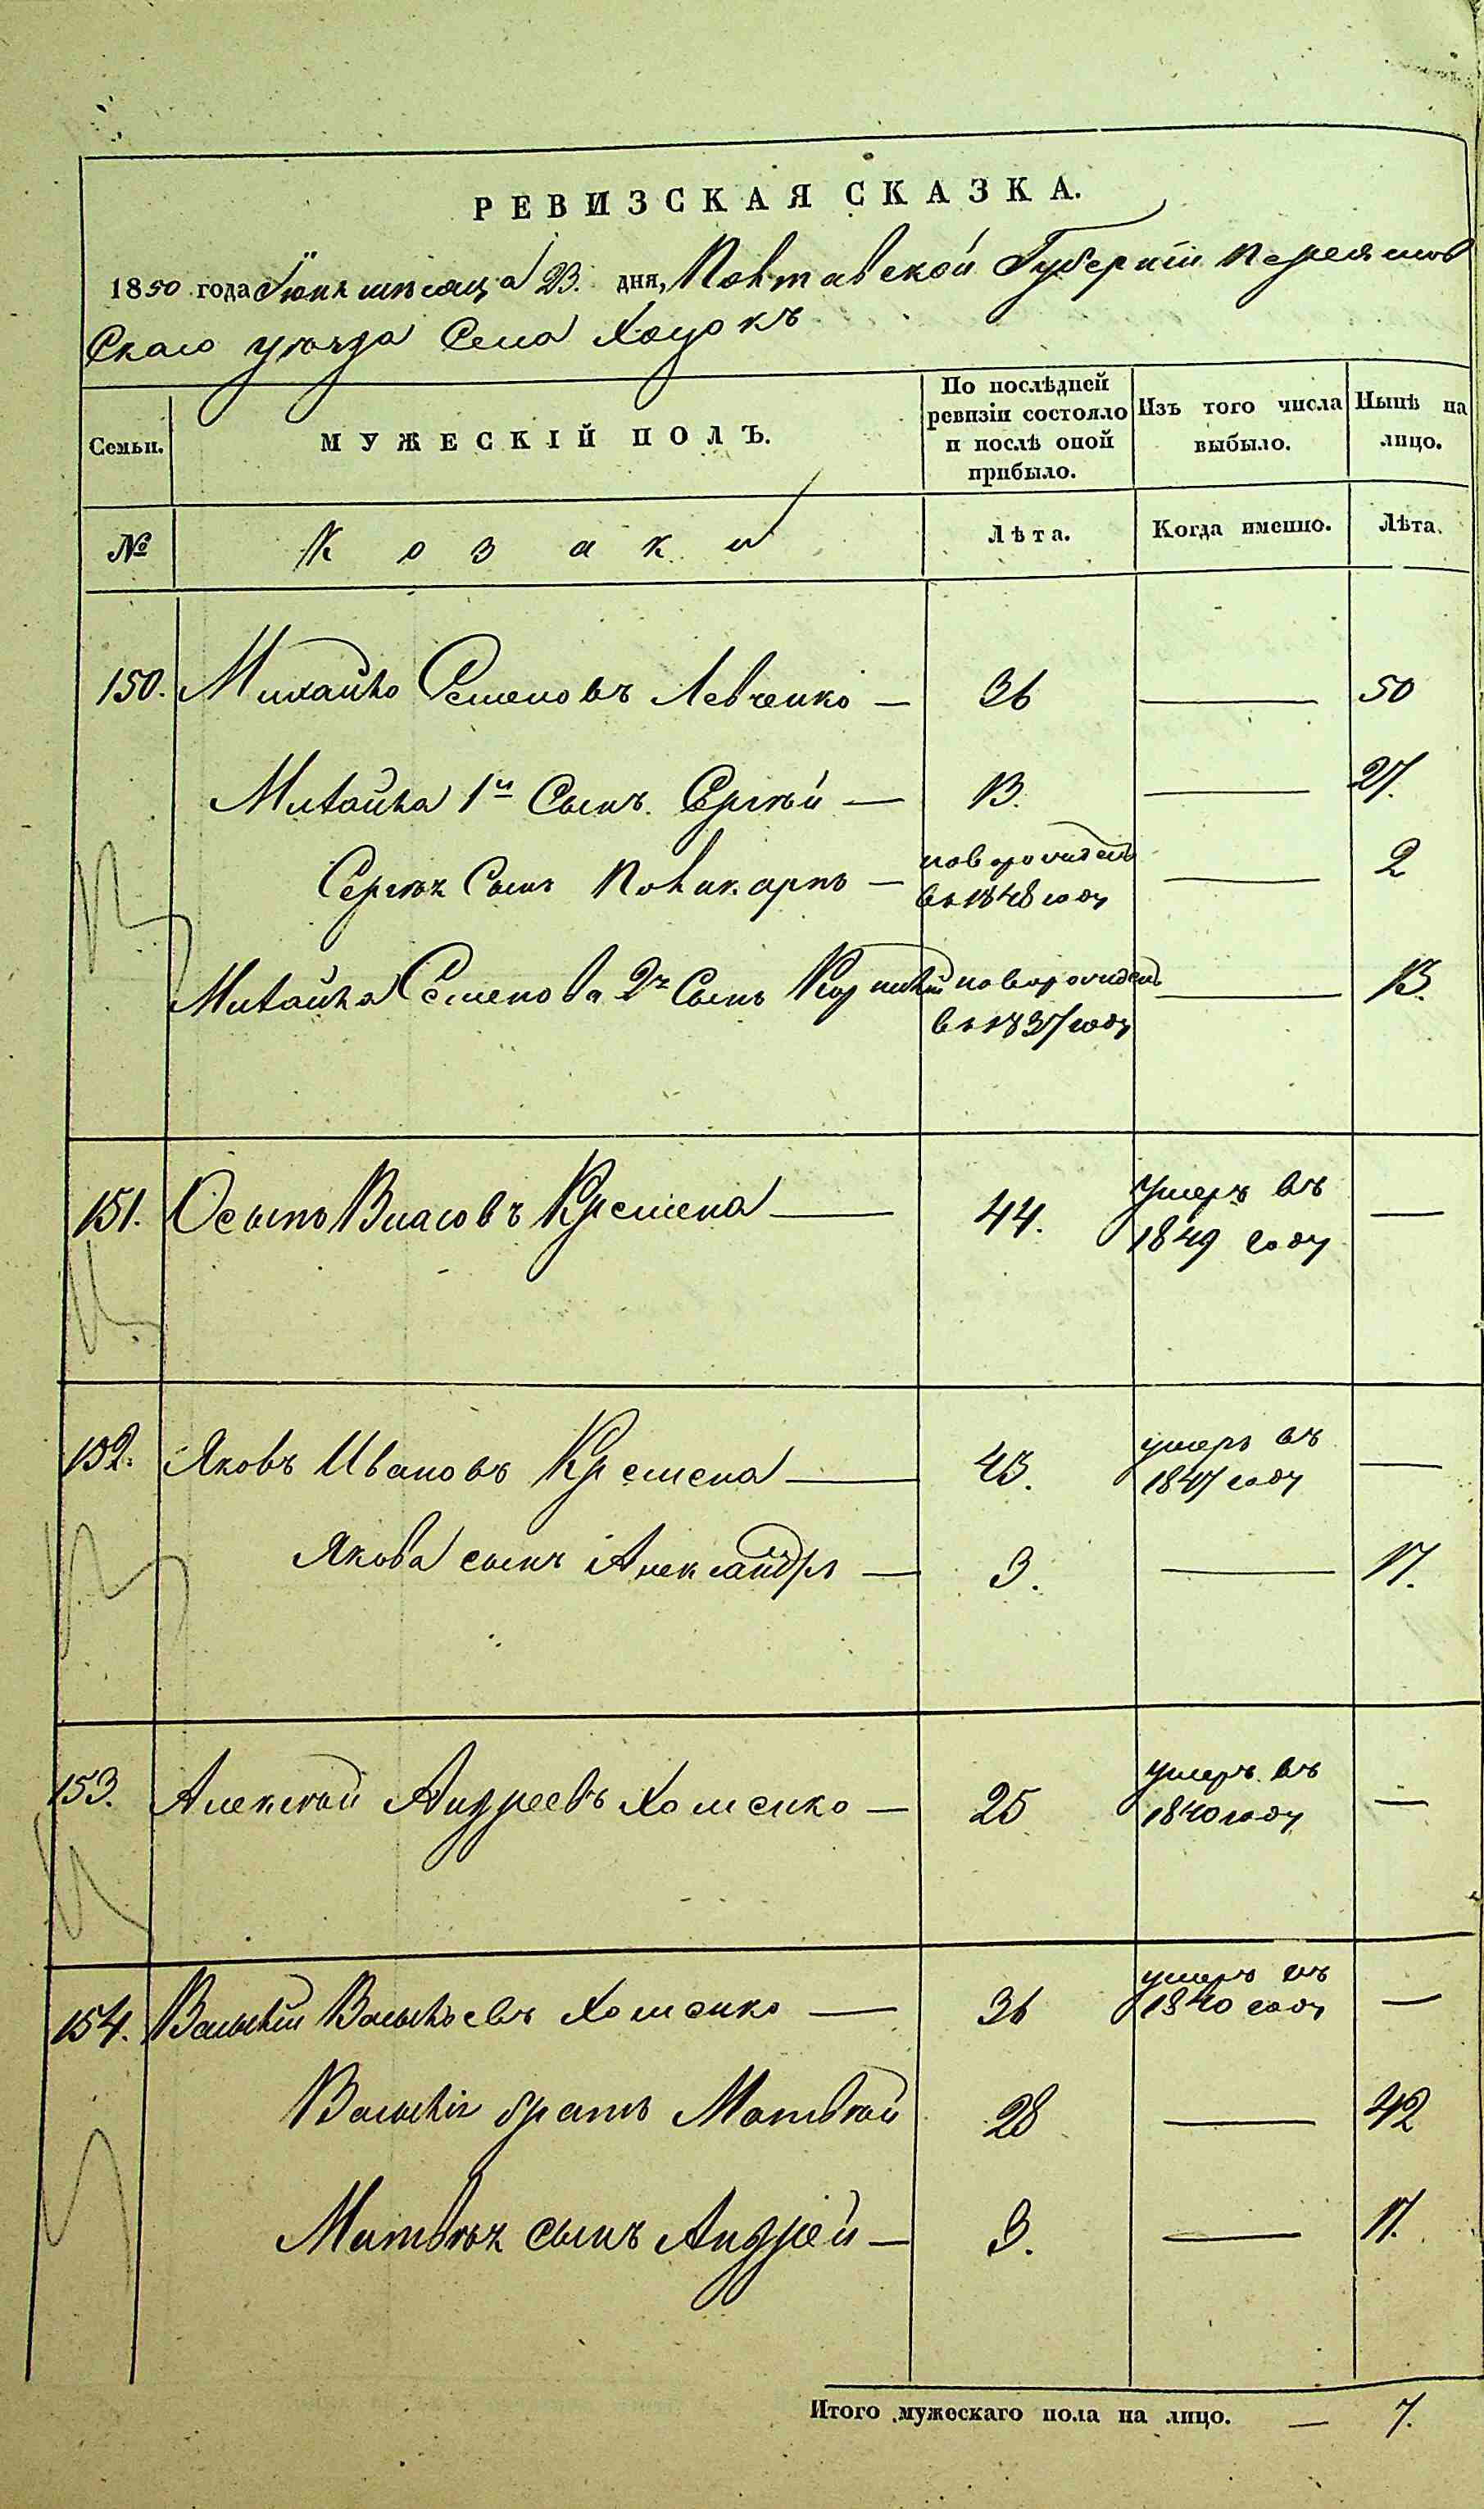 РЕВИЗСКАЯ СКАЗКА.
1850 года Іюня мѣсяца 23. дня, Полтавской Губерніи Переяслов
Скаго уѣзда Села Хоцокъ
Семьи. МУЖЕСКІЙ ПОЛЪ. По послѣдней ревизіи состояло и послѣ оной прибыло. Изъ того числа выбыло. Нынѣ на лицо.
№ Козаки Лѣта. Когда именно. Лѣта.
150. Михайло Семеновъ Левченко — 36 — 50
Михайла 1й Сынъ Сергѣй — 13. — 27.
Сергѣя Сынъ Поликарпъ — новорожден въ 1848 году — 2
Михайла Семенова 2й Сынъ новорожден въ 1837 году — 13.
151. Осыпъ Власовъ Кремена — 44. умеръ въ 1849 году —
152. Яковъ Ивановъ Кремена — 43. умеръ въ 1847 году —
Якова сынъ Александръ — 3. — 17.
153. Алексѣй Андреевъ Хоменко — 25 умеръ въ 1840 году —
154. Василій Васильевъ Хоменко — 36 умеръ въ 1840 году —
Василія братъ Матвѣй 28 — 42
Матвѣя сынъ Андрей — 3. — 17.
Итого мужескаго пола на лицо. — 7.